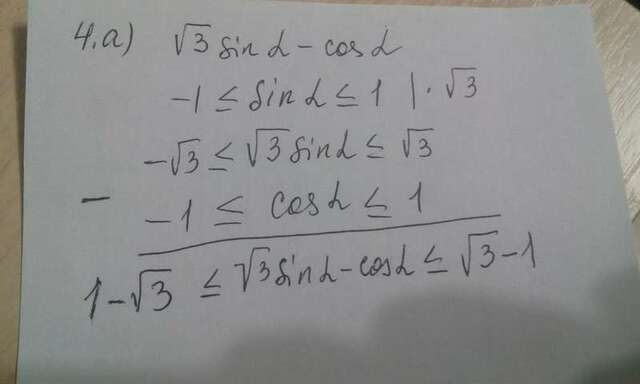 4.а) √3 sin α - cos α
-1 ≤ sin α ≤ 1 | · √3
-√3 ≤ √3 sin α ≤ √3
- -1 ≤ cos α ≤ 1
1-√3 ≤ √3 sin α - cos α ≤ √3 - 1